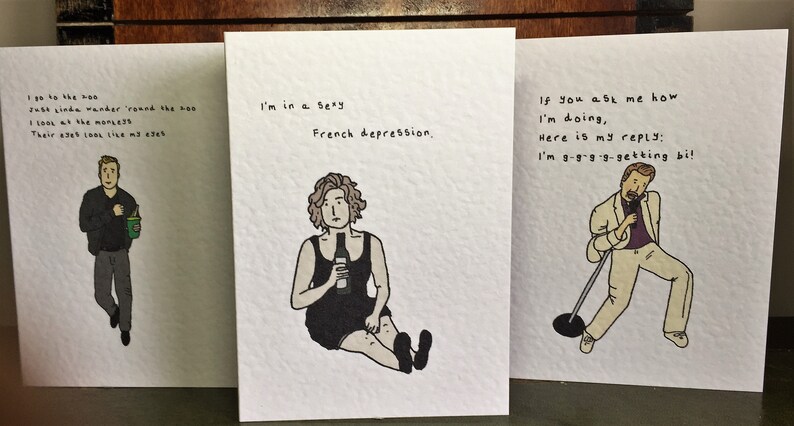 I go to the zoo
Just kinda wander 'round the zoo
I look at the monkeys
Their eyes look like my eyes
I'm in a sexy
French depression.
If you ask me how
I'm doing,
Here is my reply:
I'm g-g-g-g-getting bi!